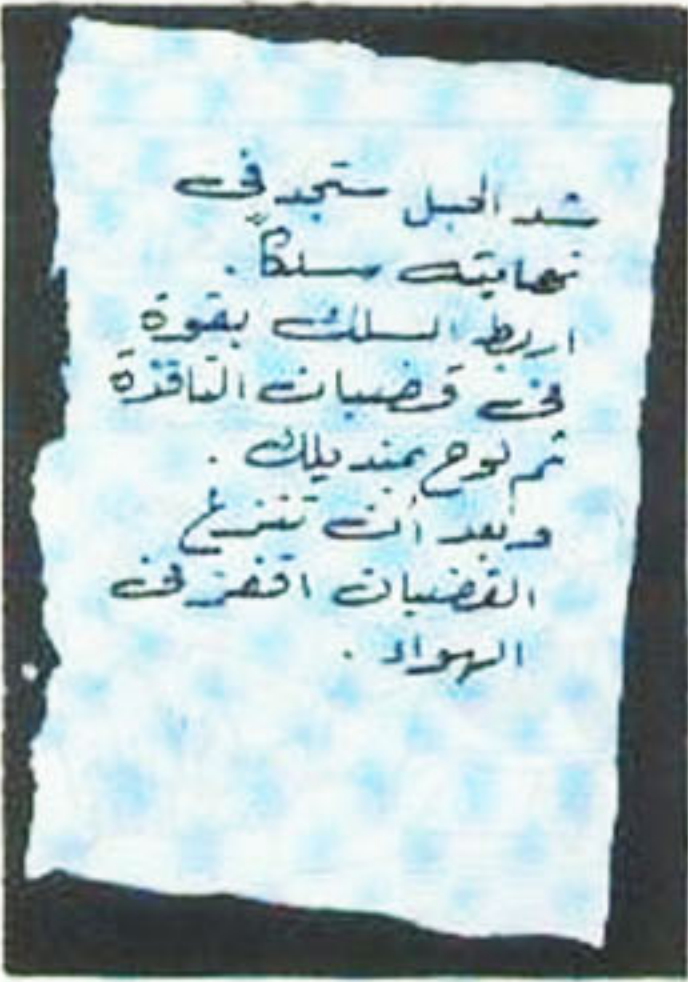 شد الحبل ستجد فى
نهايته سلكاً .
اربط السلك بقوة
فى قضبان النافذة
ثم لوح بمنديلك .
وبعد أن تنزع
القضبان اقفز فى
الهواء .